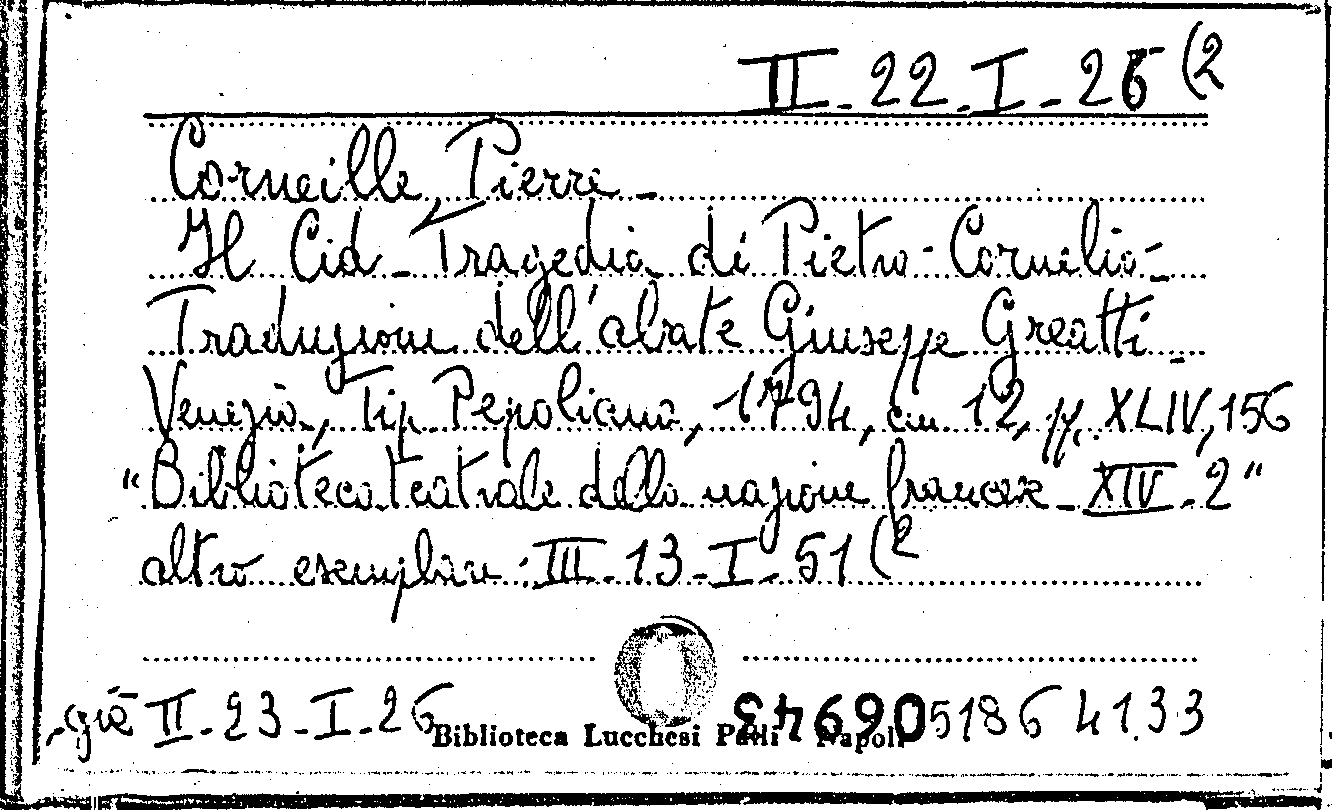 II - 22 - I - 26 (2
Corneille, Pierre -
Il Cid - Tragedia di Pietro Cornelio -
Traduzione dell'abate Giuseppe Greatti -
Venezia, Tip. Pepoliana, 1794, in 12, pp. XLIV, 156
"Biblioteca teatrale della nazione francese - XIV - 2"
altro esemplare: III - 13 - I - 51 (2
già II - 23 - I - 26
Biblioteca Lucchesi Palli Napoli
5186 4133